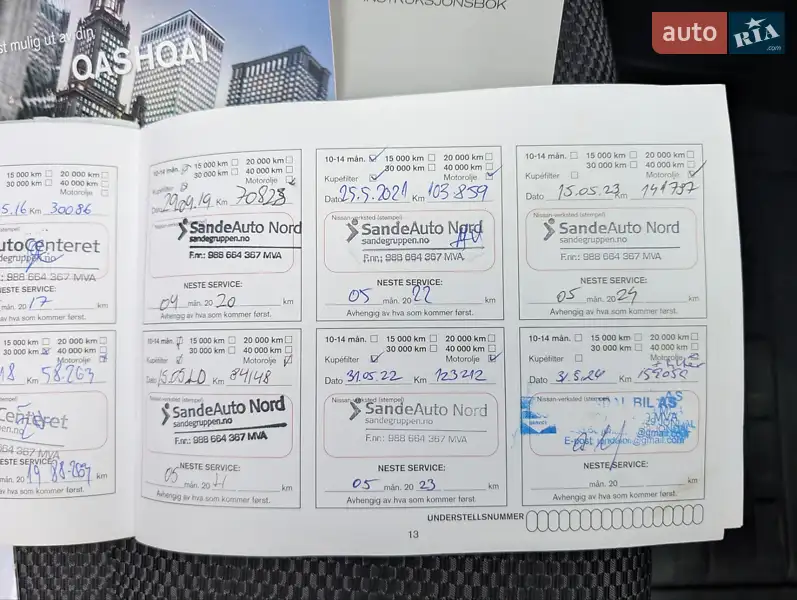 INSTRUKSJONSBOK
st mulig ut av din
QASHQAI
auto RIA .com
15 000 km 20 000 km
30 000 km 40 000 km
Motorolje
5.16 Km 30086
utoCenteret
degruppen.no
.: 988 664 367 MVA
ESTE SERVICE:
mån. 20 17 km
av hva som kommer først.
15 000 km 20 000 km
30 000 km 40 000 km
Motorolje
18 Km 58.263
Centeret
en.no
664 367 MVA
ESTE SERVICE:
mån. 20 19 88.263 km
av hva som kommer først.
10-14 mån. 15 000 km 20 000 km
30 000 km 40 000 km
Kupéfilter Motorolje
Dato 29.09.19 Km 70823
SandeAuto Nord
sandegruppen.no
F.nr.: 988 664 367 MVA
NESTE SERVICE:
09 mån. 20 20 km
Avhengig av hva som kommer først.
10-14 mån. 15 000 km 20 000 km
30 000 km 40 000 km
Kupéfilter Motorolje
Dato Km 84148
Nissan-verksted (stempel)
SandeAuto Nord
F.nr.: 988 664 367 MVA
NESTE SERVICE:
05 mån. 20 km
Avhengig av hva som kommer først.
10-14 mån. 15 000 km 20 000 km
30 000 km 40 000 km
Kupéfilter Motorolje
Dato 25.5.2021 Km 103859
Nissan-verksted (stempel)
SandeAuto Nord
sandegruppen.no
F.nr.: 988 664 367 MVA
NESTE SERVICE:
05 mån. 20 22 km
Avhengig av hva som kommer først.
10-14 mån. 15 000 km 20 000 km
30 000 km 40 000 km
Kupéfilter Motorolje
Dato 31.05.22 Km 123212
Nissan-verksted (stempel)
SandeAuto Nord
sandegruppen.no
F.nr.: 988 664 367 MVA
NESTE SERVICE:
05 mån. 20 23 km
Avhengig av hva som kommer først.
10-14 mån. 15 000 km 20 000 km
30 000 km 40 000 km
Kupéfilter Motorolje
Dato 15.05.23 Km 141737
Nissan-verksted (stempel)
SandeAuto Nord
sandegruppen.no
F.nr.: 988 664 367 MVA
NESTE SERVICE:
05 mån. 20 24 km
Avhengig av hva som kommer først.
10-14 mån. 15 000 km 20 000 km
30 000 km 40 000 km
Kupéfilter Motorolje
Dato 31.5.24 Km
Nissan-verksted (stempel)
BIL AS
MVA
E-post: @gmail.com
NESTE SERVICE:
mån. 20 km
Avhengig av hva som kommer først.
UNDERSTELLSNUMMER
13